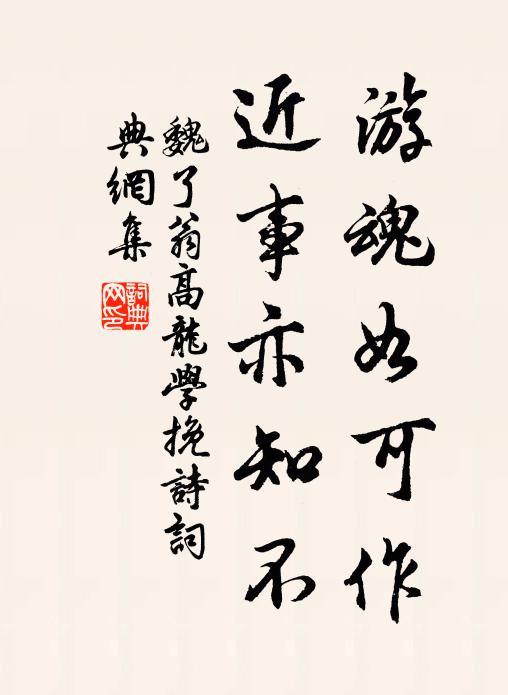 游魂如可作
近事亦知不
魏了翁高龍學挽詩詞
典網集
詞典
网印